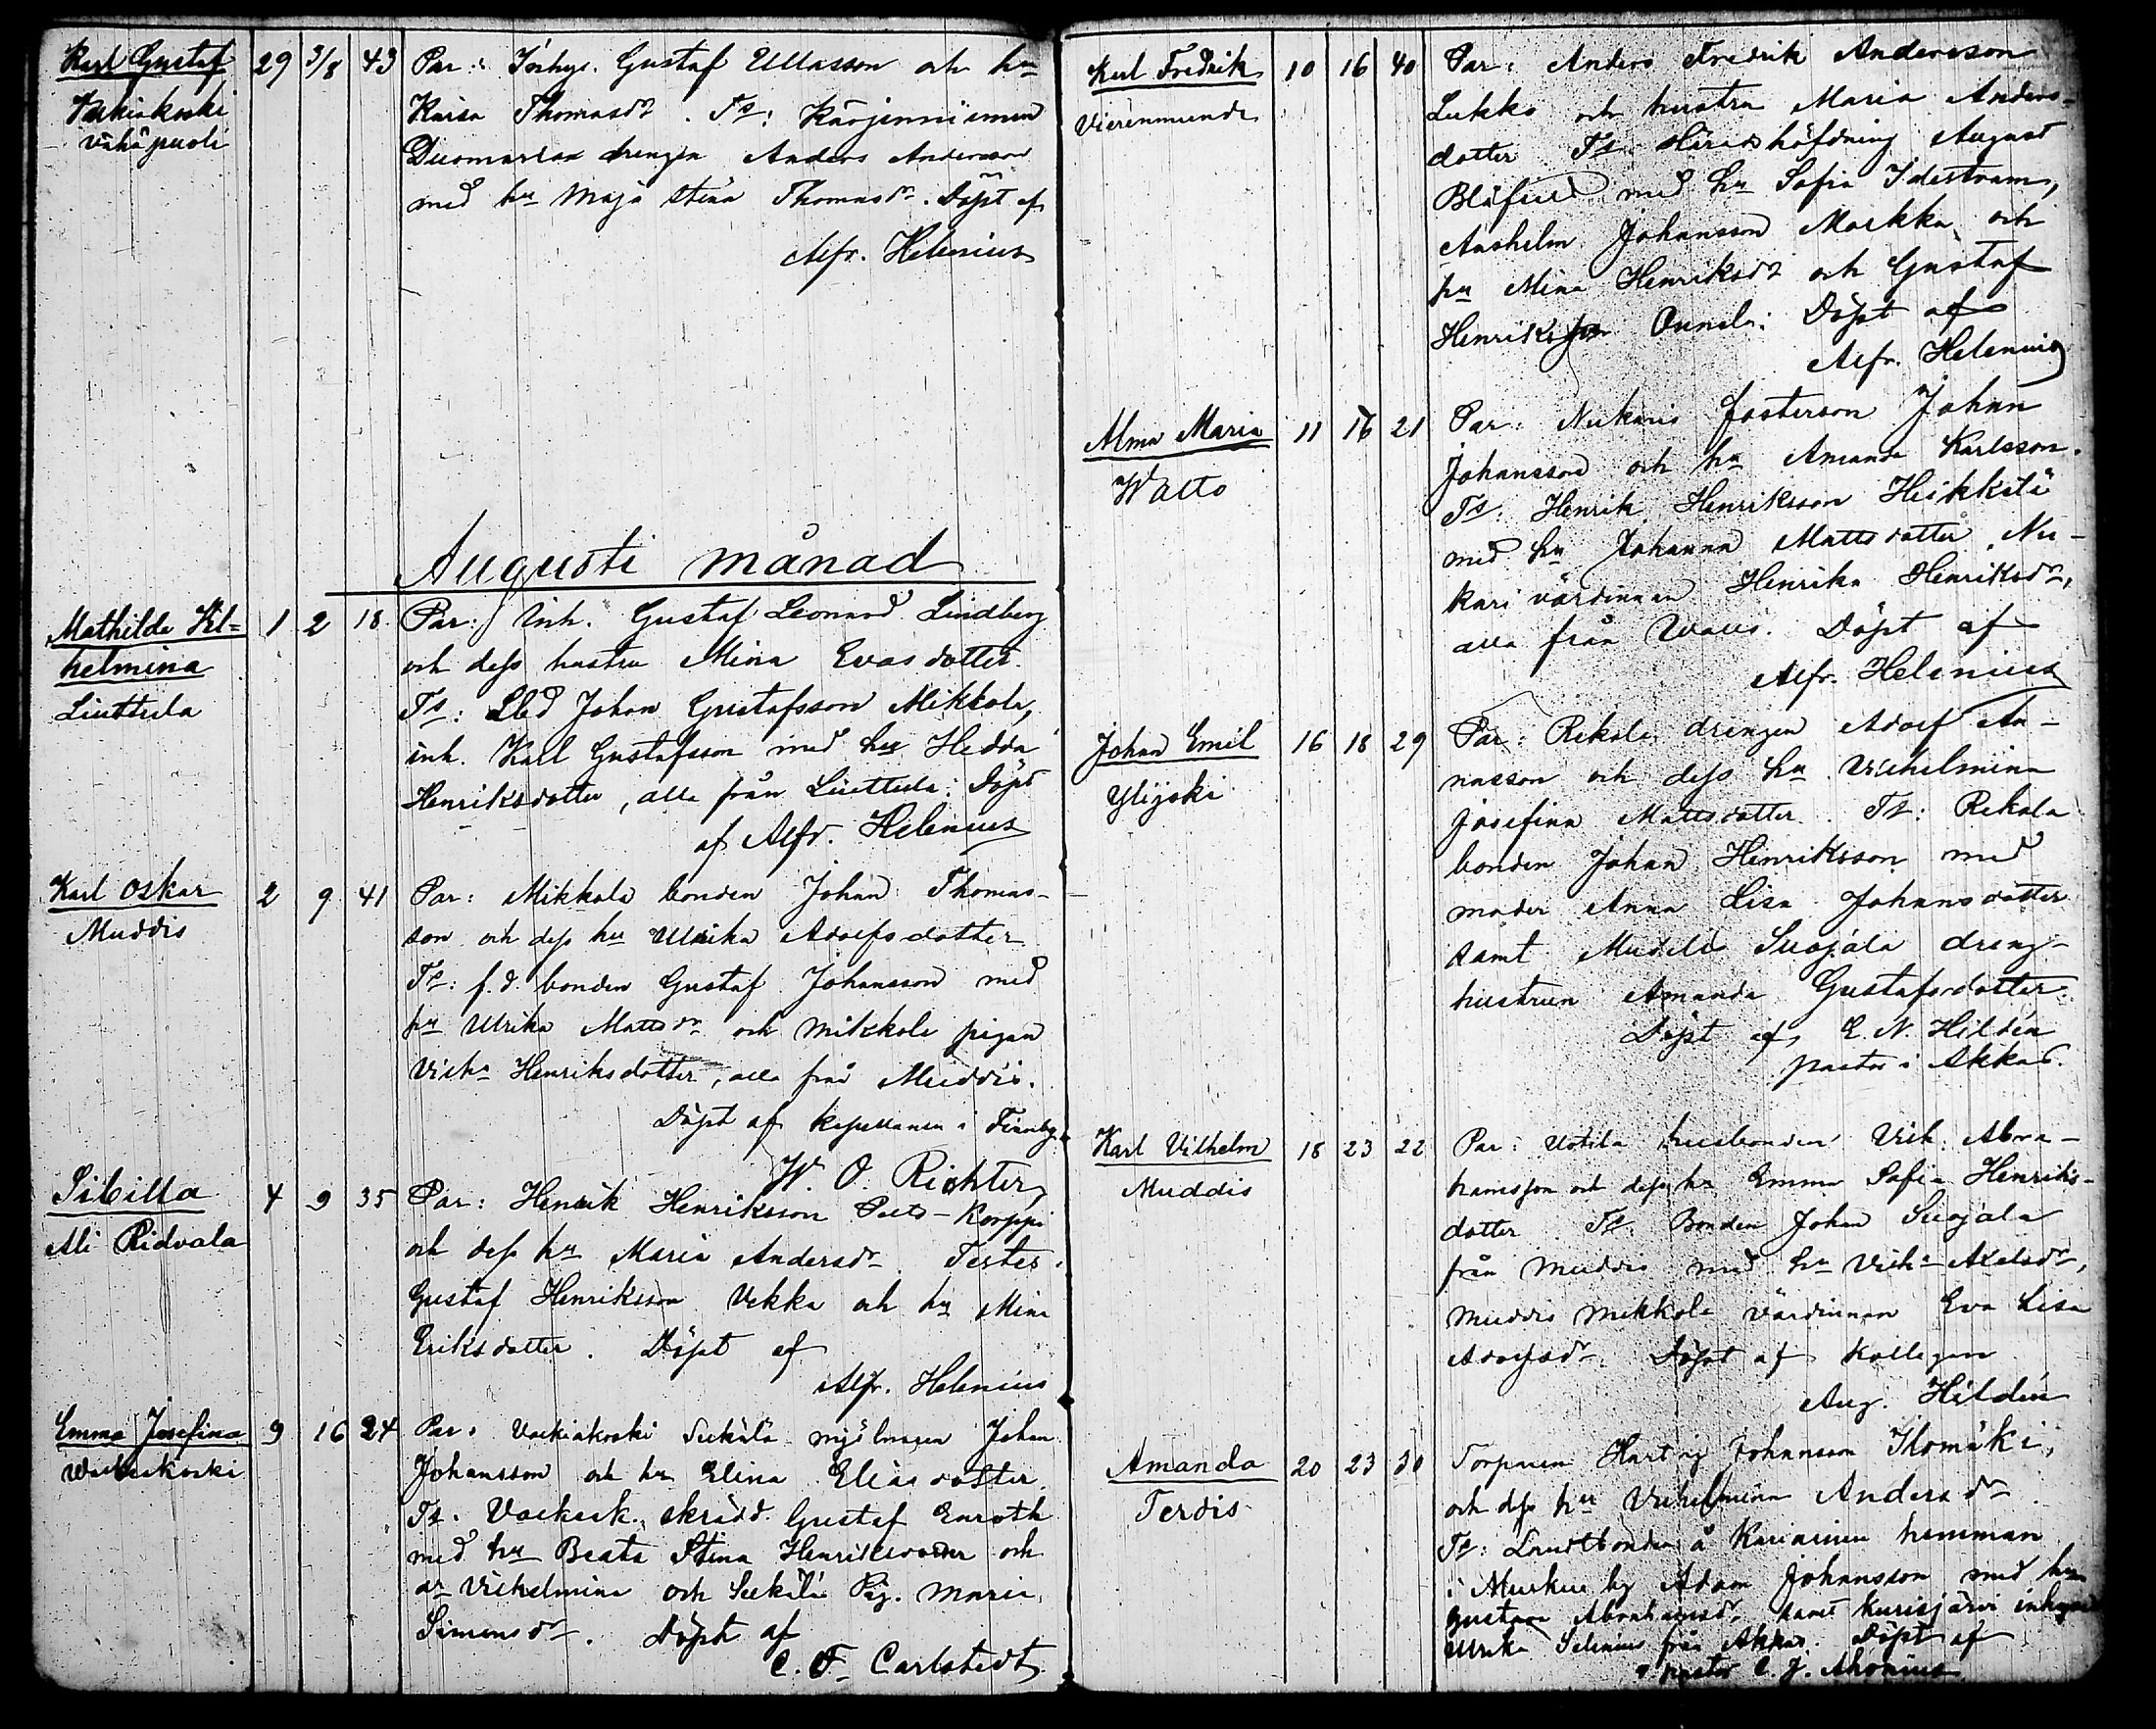 Karl Gustaf 29 3/8 43 Par: Inhys. Gustaf Ullasson och hu
Vakiakoski Kaisa Thomasdr. Ts: Kärjenniemen
vähäpuoli drengen Anders Andersson
med hu Maja Stina Thomasdr. Döpt af
Alfr. Helenius
Augusti månad
Mathilda Vil= 1 2 18 Par: Inh. Gustaf Leonard Lindberg
helmina och dess hustru Mina Evasdotter.
Liuttula Ts: Johan Gustafsson Mikkola,
inh. Karl Gustafsson med hu Hedda
Henriksdotter, alla från Liuttula. Döpt
af Alfr. Helenius
Karl Oskar 2 9 41 Par: Mikkola bonden Johan Thomas-
Muddis son och dess hu Ulrika Adolfsdotter
Ts: f.d. bonden Gustaf Johansson med
hu Ulrika Mattsdr och Mikkola pigan
Vilha Henriksdotter, alla från Muddis.
Döpt af kapellanen i
W. O. Richter
Sibilla 4 9 35 Par: Henrik Henriksson Korppi
Ali Ridvala och dess hu Maria Andersdr. Testes:
Gustaf Henriksson Vekka och hu Mina
Eriksdotter. Döpt af
Alfr. Helenius
Emma Josefina 9 16 24 Par: Valkiakoski Seekälä mjölnaren Johan
Johansson och hu Elina Eliasdotter.
Ts. skrädd. Gustaf Enroth
med hu Beata Stina Henriksdotter och
dr Vilhelmina och Seekälä Pig. Maria
Simonsdr. Döpt af
C. F. Carlstedt
Karl Fredrik 10 16 40 Par: Anders Fredrik Andersson
Vierenmunde Lukko och hustru Maria Anders-
dotter Ts: Häradshöfdning August
Blåfield med hu Sofia Idestram,
Anshelm Johansson Markka och
hu Mina Henriksdr och Gustaf
Henriksson Onnela. Döpt af
Alfr. Helenius
Alma Maria 11 16 21 Par: Nukaris fosterson Johan
Wallo Johansson och hu Amanda Karlsson.
Ts: Henrik Henriksson Heikkilä
med hu Johanna Mattsdotter, Nu-
kari värdinnan Henrika Henriksdr,
alla från Wallo. Döpt af
Alfr. Helenius
Johan Emil 16 18 29 Par: Rekola drengen Adolf An-
Ylijoki nasson och dess hu Vilhelmina
Josefina Mattsdotter. Ts: Rekola
bonden Johan Henriksson med
moder Anna Lisa Johansdotter
samt Muddis Suojala dreng-
hustrun Amanda Gustafsdotter.
Döpt af E. N. Hildén
pastor i Akkas.
Karl Vilhelm 18 23 22 Par: Uotila husbonden Vilh. Abra-
Muddis hamsson och dess hu Emma Sofia Henriks-
dotter Ts: Bonden Johan Suojala
från Muddis med hu Vilha Axelsdr,
Muddis Mikkola värdinnan Eva Lisa
Adolfsdr. Döpt af Kollegan
Aug. Hildén
Amanda 20 23 30 Torparen Hartvig Johansson Ilomäki,
Terdis och dess hu Vilhelmina Andersdr
Ts: Landtbonden å Kariainen hemman
i by Adam Johansson med hu
Gustava Abrahamsdr, samt Kurisjärvi
Ulrika Selenius från Akkas. Döpt af
pastor C. J. Ahonius